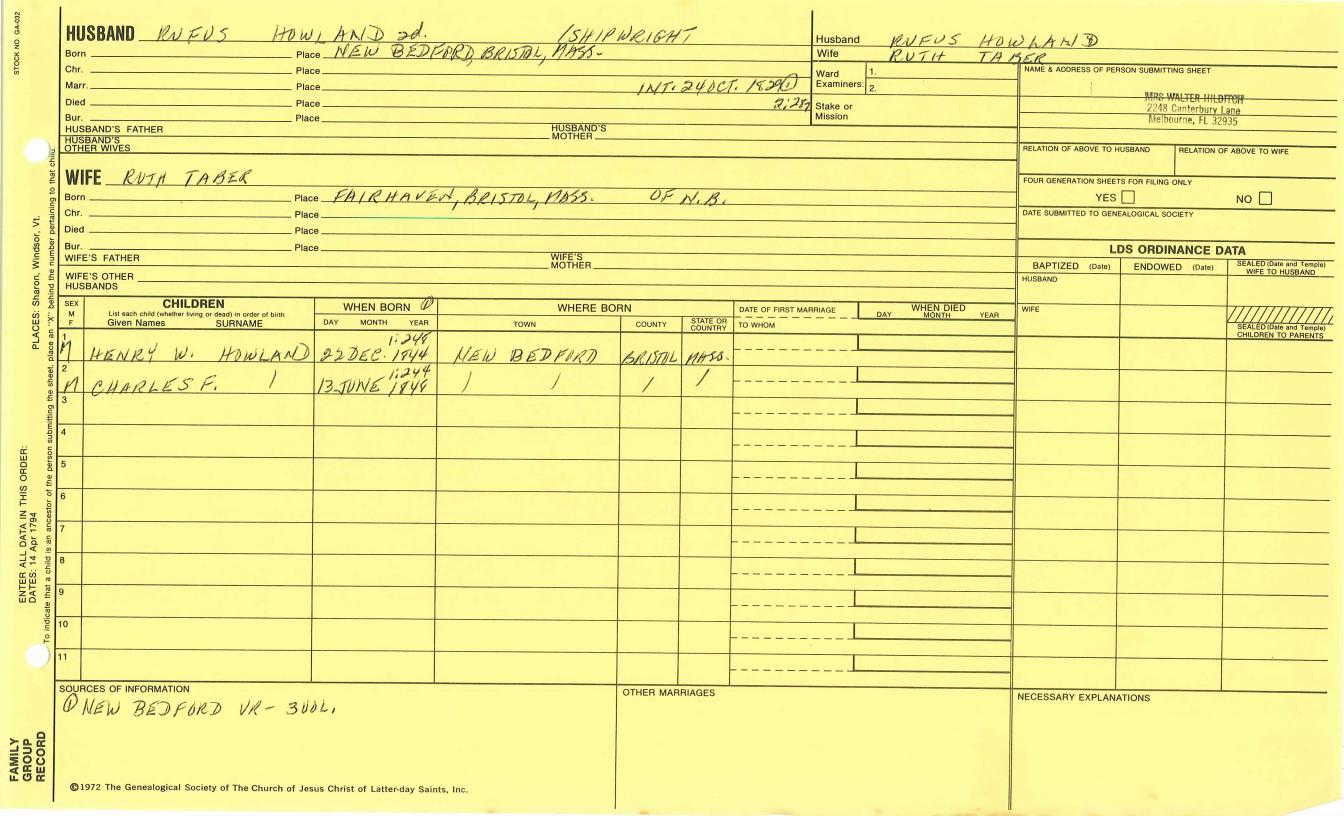 STOCK NO. GA-032
HUSBAND RUFUS HOWLAND 2d. /SHIPWRIGHT
Born Place NEW BEDFORD, BRISTOL, MASS.
Chr. Place
Marr. Place INT. 24 OCT. 1829 ①
Died Place 2:287
Bur. Place
HUSBAND'S FATHER HUSBAND'S MOTHER
HUSBAND'S OTHER WIVES
Husband RUFUS HOWLAND
Wife RUTH TABER
Ward Examiners: 1.
2.
Stake or Mission
NAME & ADDRESS OF PERSON SUBMITTING SHEET
MRS WALTER HILDITCH
2248 Canterbury Lane
Melbourne, FL 32935
RELATION OF ABOVE TO HUSBAND RELATION OF ABOVE TO WIFE
FOUR GENERATION SHEETS FOR FILING ONLY
YES NO
DATE SUBMITTED TO GENEALOGICAL SOCIETY
WIFE RUTH TABER
Born Place FAIRHAVEN, BRISTOL, MASS. OF N.B.
Chr. Place
Died Place
Bur. Place
WIFE'S FATHER WIFE'S MOTHER
WIFE'S OTHER HUSBANDS
LDS ORDINANCE DATA
BAPTIZED (Date) ENDOWED (Date) SEALED (Date and Temple) WIFE TO HUSBAND
HUSBAND
WIFE
SEALED (Date and Temple) CHILDREN TO PARENTS
SEX M F
CHILDREN
List each child (whether living or dead) in order of birth
Given Names SURNAME
WHEN BORN ①
DAY MONTH YEAR
WHERE BORN
TOWN COUNTY STATE OR COUNTRY
DATE OF FIRST MARRIAGE
TO WHOM
WHEN DIED
DAY MONTH YEAR
1 1:248
M HENRY W. HOWLAND 22 DEC. 1844 NEW BEDFORD BRISTOL MASS.
2 1:244
M CHARLES F. / 13 JUNE 1848 / / / /
3
4
5
6
7
8
9
10
11
SOURCES OF INFORMATION
① NEW BEDFORD VR - 3 VOL.
OTHER MARRIAGES
NECESSARY EXPLANATIONS
©1972 The Genealogical Society of The Church of Jesus Christ of Latter-day Saints, Inc.
FAMILY GROUP RECORD
ENTER ALL DATA IN THIS ORDER:
DATES: 14 Apr 1794 PLACES: Sharon, Windsor, Vt.
To indicate that a child is an ancestor of the person submitting the sheet, place an "X" behind the number pertaining to that child.